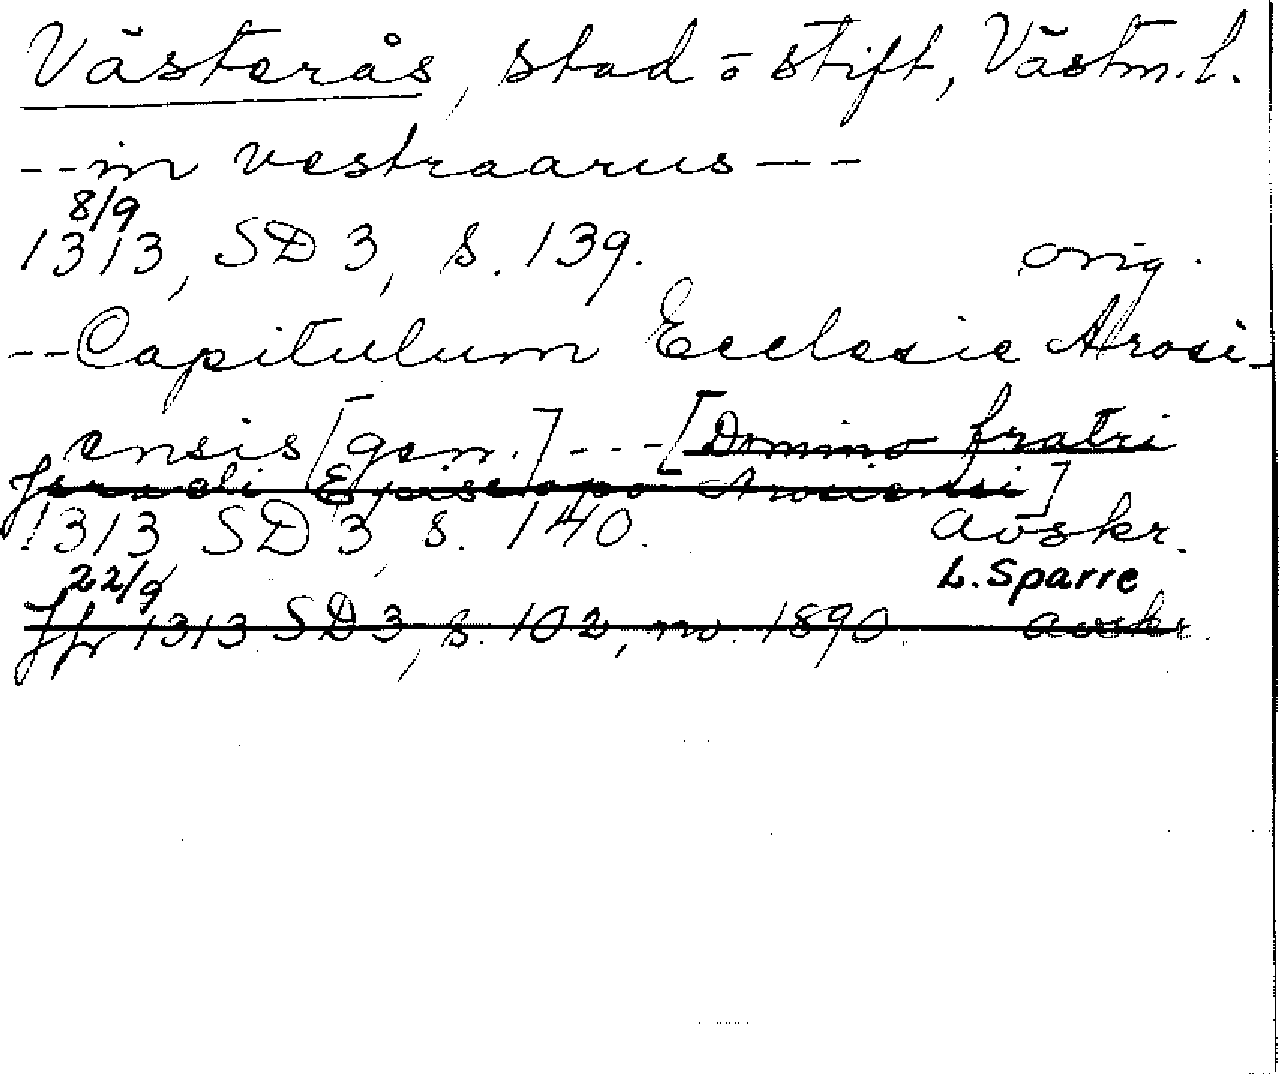 Västerås, stad o stift, Västm. l.
--in vestraarus---
8/9
1313, SD 3, s. 139. orig.
--Capitulum Ecclesie Arosi-
ensis [gen.] --- [Domino fratri
Jsraeli Episcopo Arosiensi]
1313 SD 3, s. 140. avskr.
22/9 L. Sparre
Jfr 1313 SD 3, s. 102, nr. 1890 avskr.